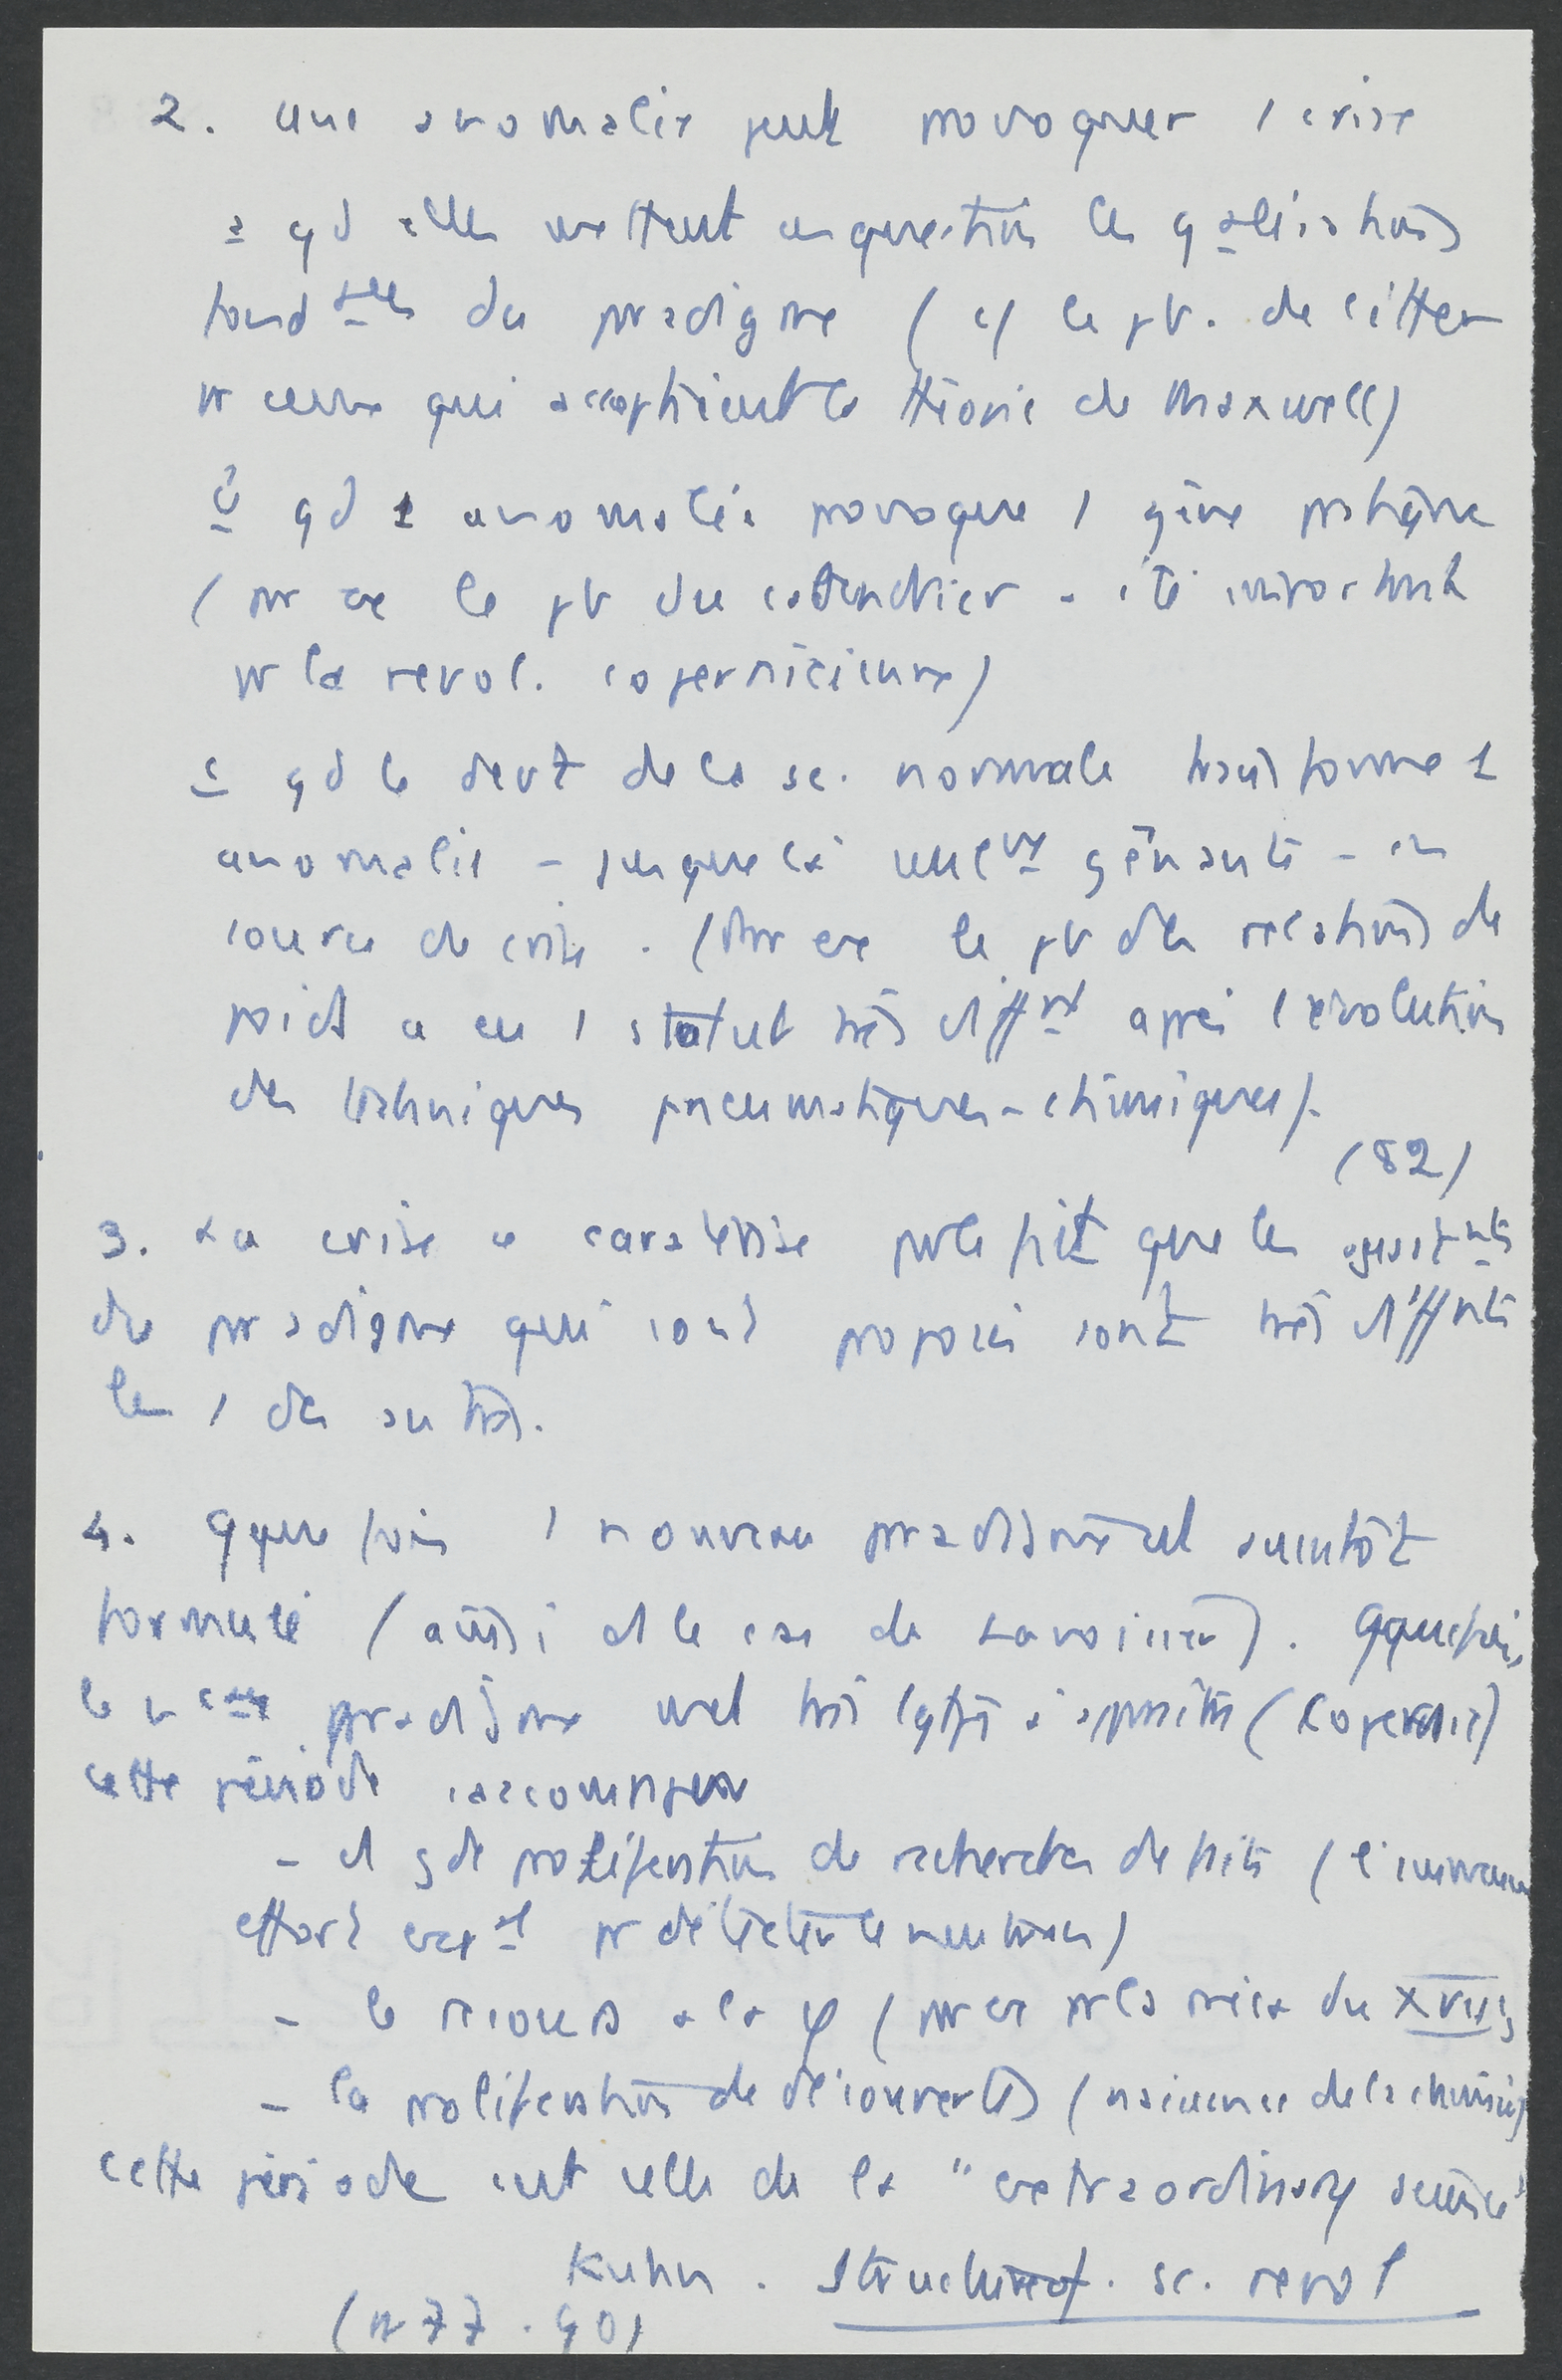 2. Une anomalie peut provoquer 1 crise
a qd elles mettent en question les gralisations
fondtales du pradigme (cf le pb. de l'éther
pr ceux qui acceptaient la théorie de Maxwell)
b qd 1 anomalie provoque 1 gêne pratique
(pr ex le pb du calendrier a été important
pr la revol. copernicienne)
c qd le devt de la sc. normale transforme 1
anomalie - jusque là seulmt gênante - en
source de crise. (Pr ex le pb des relations de
poids a eu 1 statut très diffrt après l'évolution
des techniques pneumatiques-chimiques).
(82)
3. La crise se caractérise par le fait que les
du pradigme qui sont proposés sont très diffrts
les 1 des autres.
4. Qquefois 1 nouveau pradigme est aussitôt
formulé (ainsi ds le cas de Lavoisier). Qquefois,
le nveau pradigme met très lgtps à apparaître (Copernic)
cette période s'accompagne
- d'1 gde prolifération de recherches de faits (l'immense
effort expal pr détecter le neutrino)
- le recours à la φ (pr ex pr la méca du XVIIs
- la prolifération de découvertes (naissance de la chimie)
cette période est celle de la "extraordinary science"
Kuhn. Structure of. sc. revol
(p 77.90)